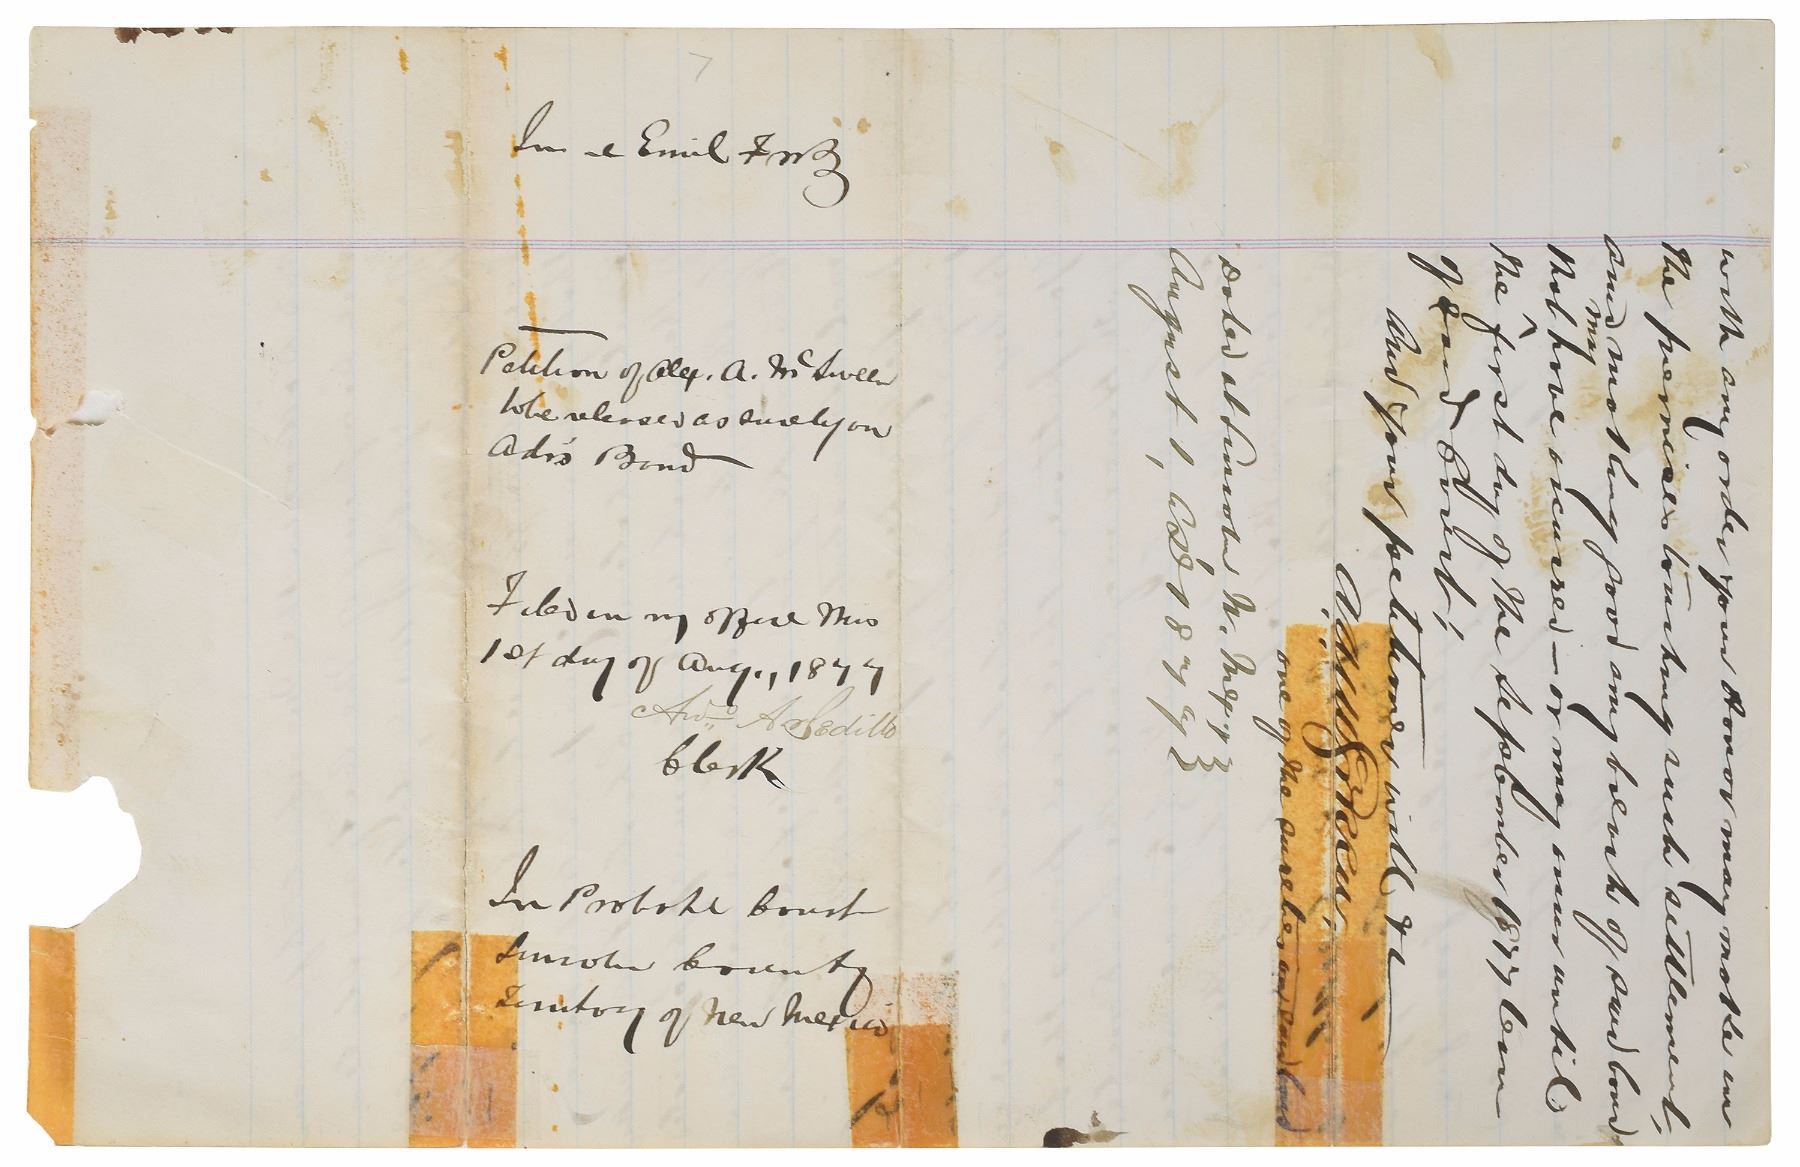 In re Emil Fritz
Petition of Alex. A. McSween
to be released as surety on
Adr's Bond
Filed in my office this
1st day of Aug., 1877
A Sedillo
Clerk
In Probate Court
Lincoln County
Territory of New Mexico
with any order your Honor may make in
the premises touching such settlement,
and making good any breach of said bond
that may have occurred — or may occur until
the first day of the September 1877 term
of said Court;
And your petitioner will &c
A A McSween
one of the sureties on said bond
Dated at Lincoln N. Mex }
August 1, AD 1877 }